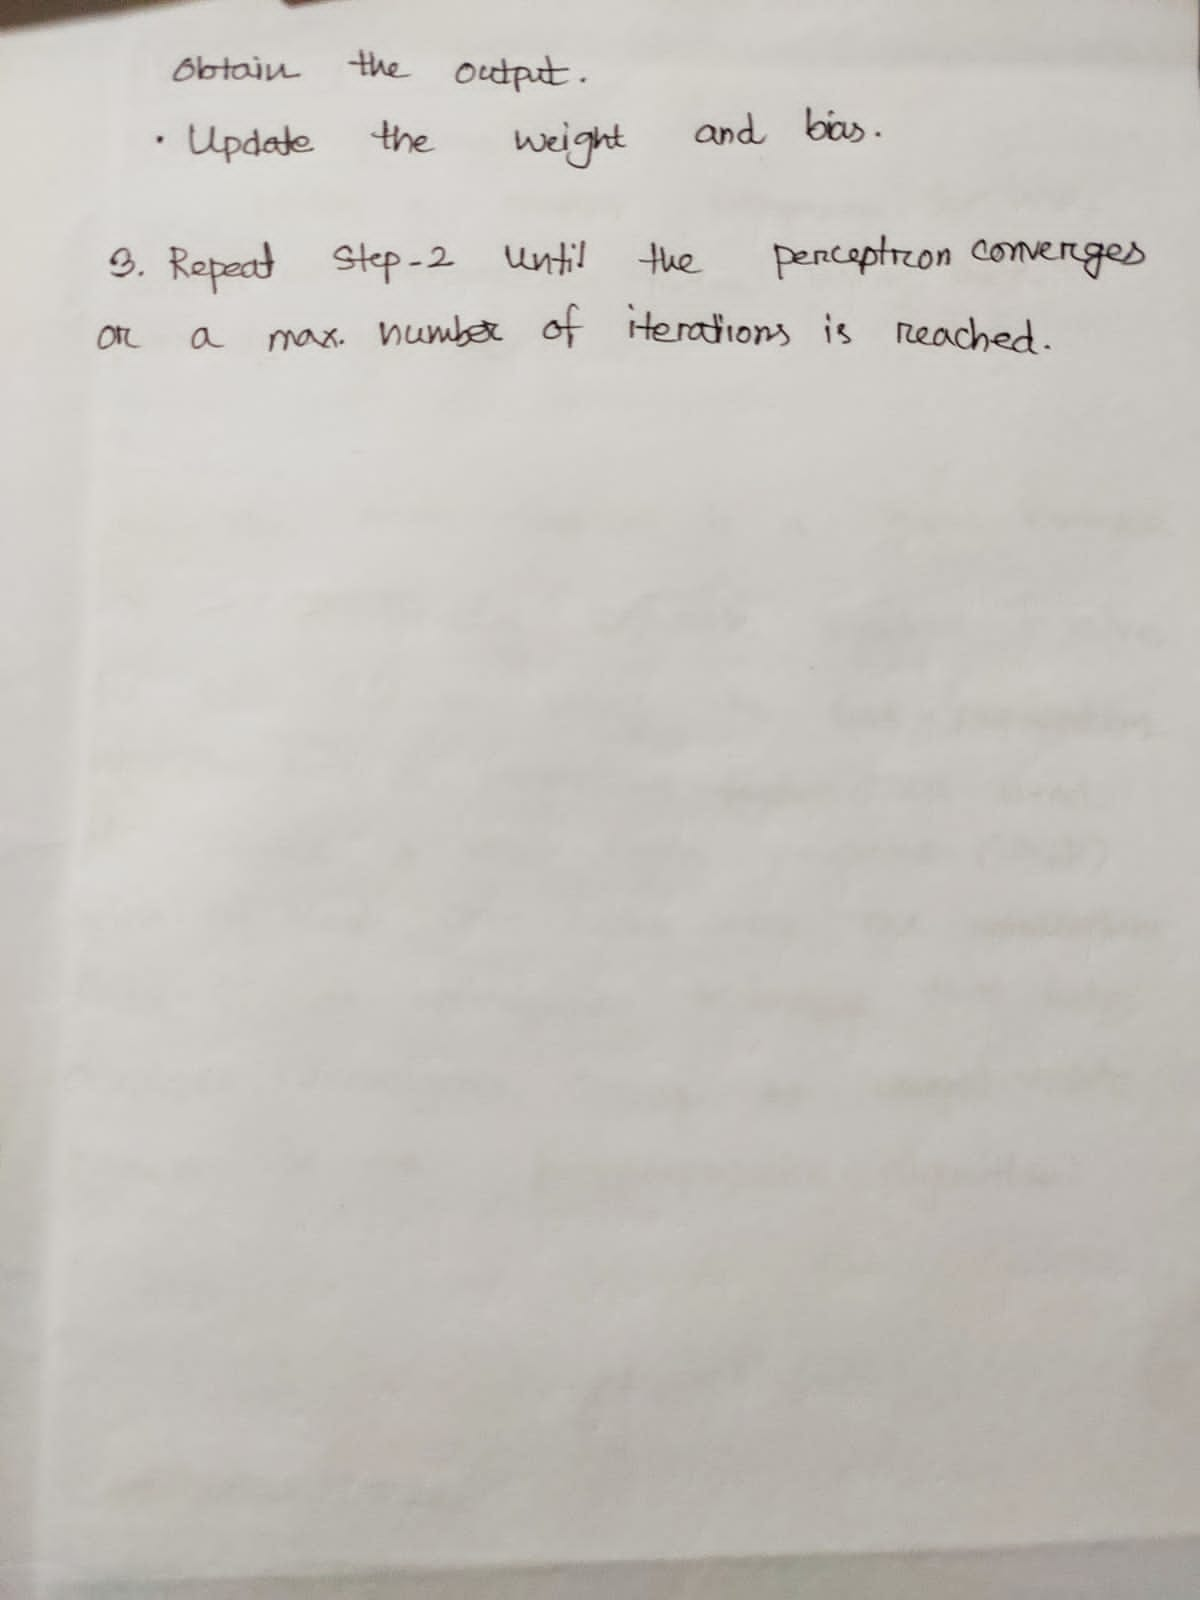 Obtain the output.
• Update the weight and bias.
3. Repeat Step-2 until the perceptron converges
or a max. number of iterations is reached.